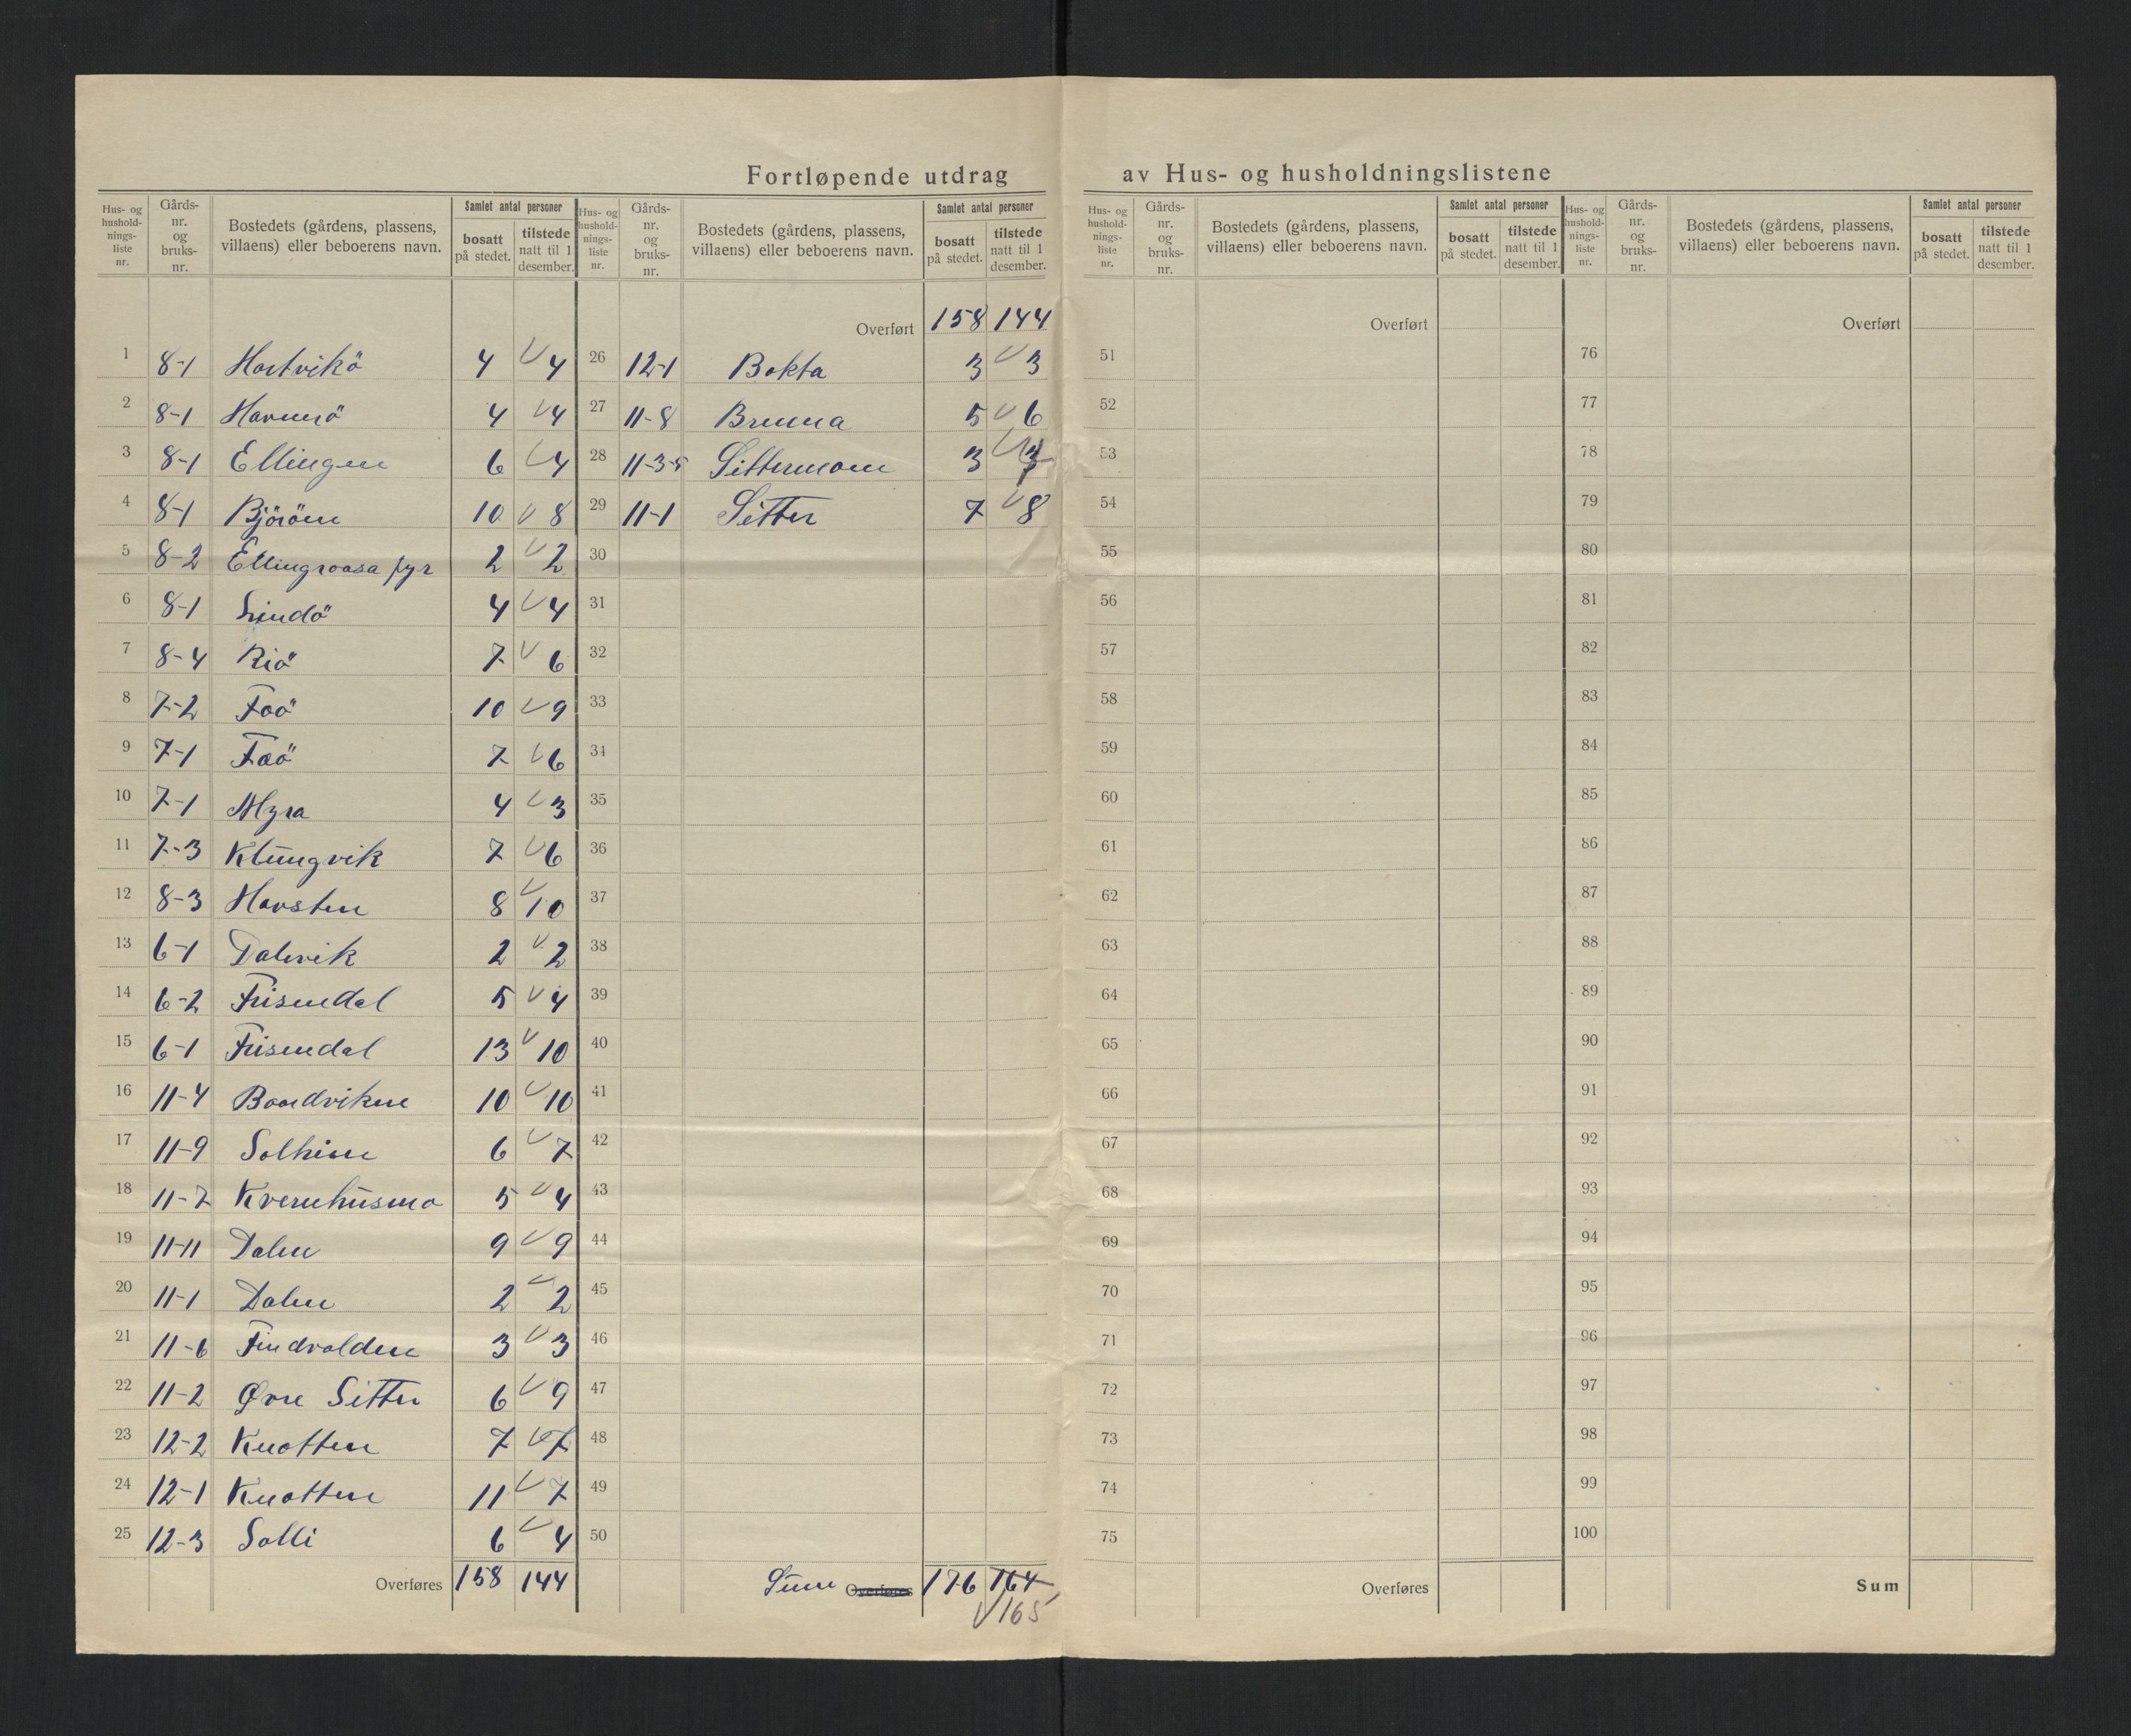 Fortløpende utdrag av Hus- og husholdningslistene
Hus- og husholdnings-liste nr. | Gårds-nr. og bruks-nr. | Bostedets (gårdens, plassens, villaens) eller beboerens navn. | Samlet antal personer | bosatt på stedet. | tilstede natt til 1 desember.
Hus- og husholdnings-liste nr. | Gårds-nr. og bruks-nr. | Bostedets (gårdens, plassens, villaens) eller beboerens navn. | Samlet antal personer | bosatt på stedet. | tilstede natt til 1 desember.
1 8-1 Hortvikö 4 4
2 8-1 Havmö 4 4
3 8-1 Ellingen 6 4
4 8-1 Björöen 10 8
5 8-2 Ellingraasa fyr 2 2
6 8-1 Lindö 4 4
7 8-4 Riö 7 6
8 7-2 Faö 10 9
9 7-1 Faö 7 6
10 7-1 Myra 4 3
11 7-3 Klüngvik 7 6
12 8-3 Harsten 8 10
13 6-1 Dalevik 2 2
14 6-2 Finsendal 5 4
15 6-1 Finsendal 13 10
16 11-4 Baadviken 10 10
17 11-9 Solheim 6 7
18 11-7 Kvernhüsmo 5 4
19 11-11 Dalen 9 9
20 11-1 Dalen 2 2
21 11-6 Findvolden 3 3
22 11-2 Øvre Sitter 6 9
23 12-2 Knotten 7 7
24 12-1 Knotten 11 7
25 12-3 Solli 6 4
Overføres 158 144
Overført 158 144
26 12-1 Bokta 3 3
27 11-8 Brenna 5 6
28 11-3-5 Sittermoen 3
29 11-1 Sitter 7 8
30
31
32
33
34
35
36
37
38
39
40
41
42
43
44
45
46
47
48
49
50
Süm Overføres 176 164
165
Hus- og husholdnings-liste nr. | Gårds-nr. og bruks-nr. | Bostedets (gårdens, plassens, villaens) eller beboerens navn. | Samlet antal personer | bosatt på stedet. | tilstede natt til 1 desember.
Hus- og husholdnings-liste nr. | Gårds-nr. og bruks-nr. | Bostedets (gårdens, plassens, villaens) eller beboerens navn. | Samlet antal personer | bosatt på stedet. | tilstede natt til 1 desember.
Overført
51
52
53
54
55
56
57
58
59
60
61
62
63
64
65
66
67
68
69
70
71
72
73
74
75
Overføres
Overført
76
77
78
79
80
81
82
83
84
85
86
87
88
89
90
91
92
93
94
95
96
97
98
99
100
Sum